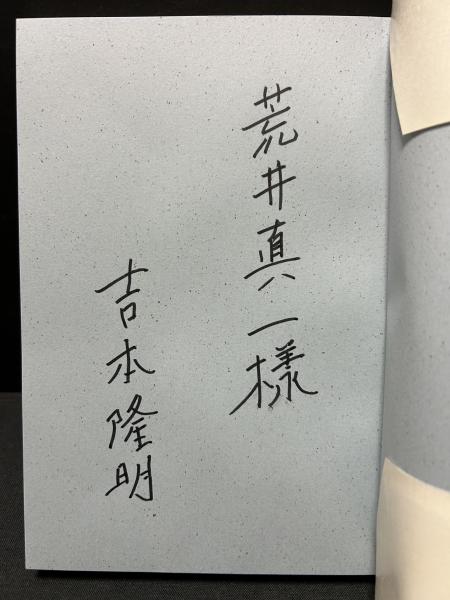 荒井真一様
吉本隆明